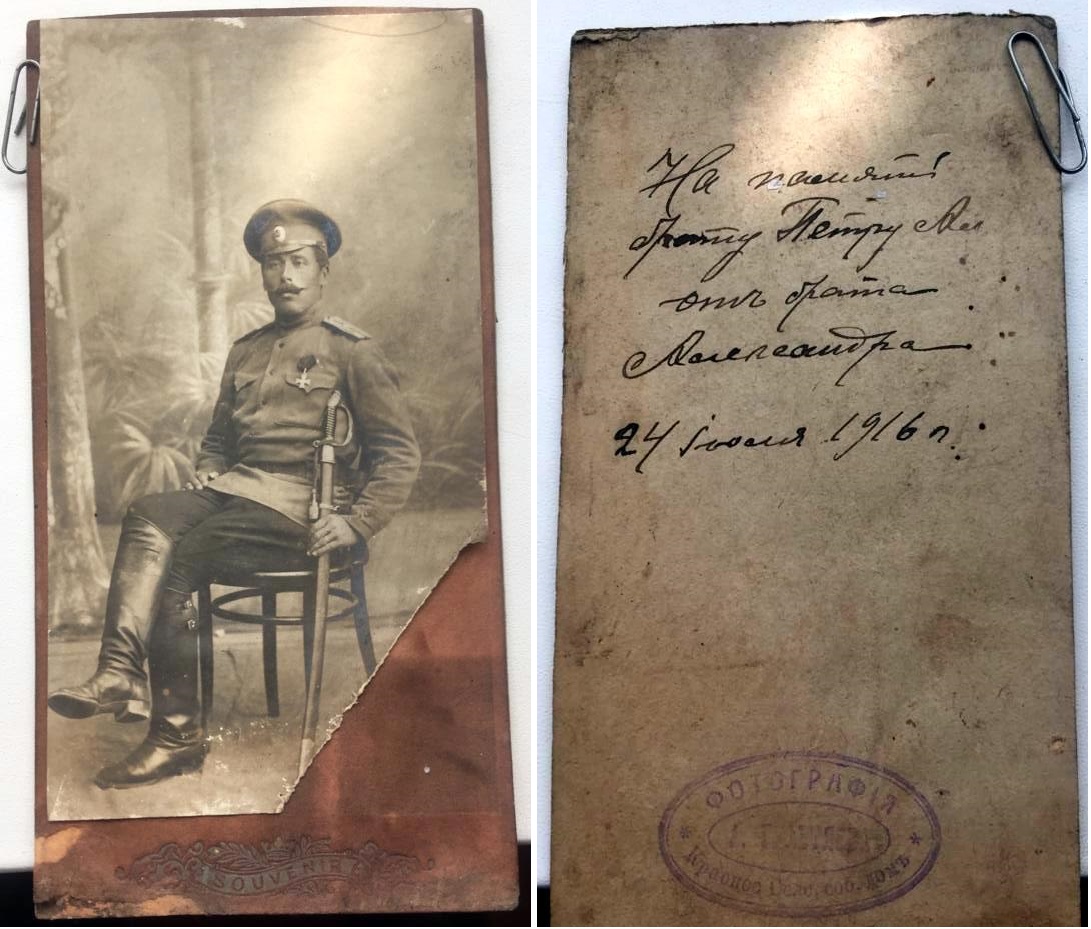 SOUVENIR
На память
брату Петру Ал
отъ брата
Александра
24 іюля 1916 г.
ФОТОГРАФІЯ
Красное Село, соб. домъ